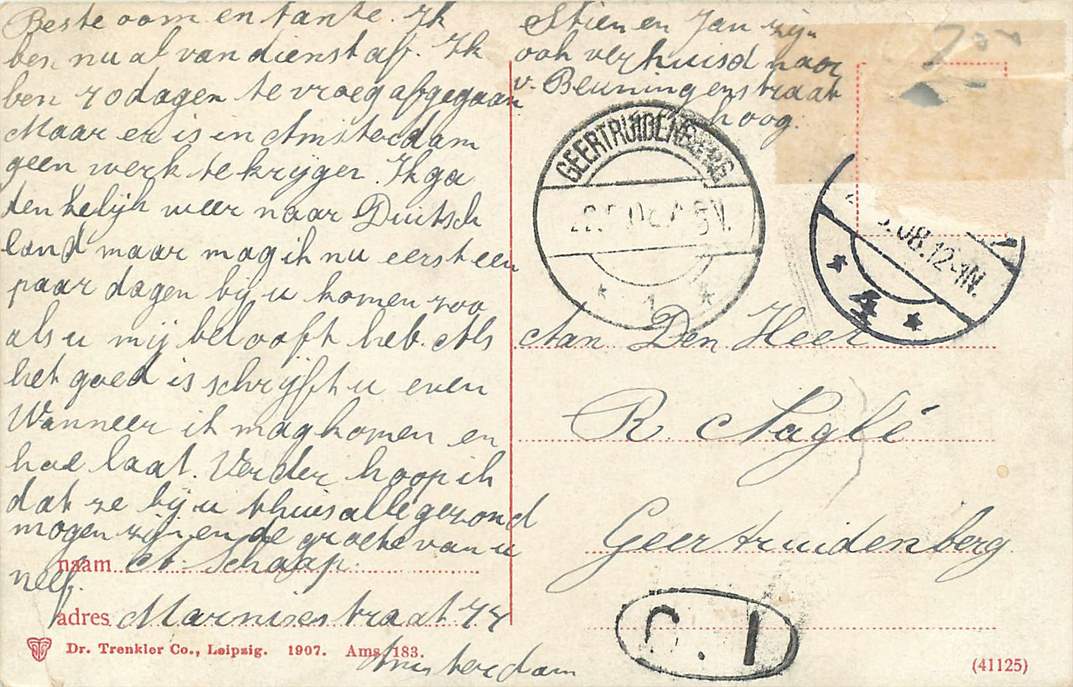 Beste oom en tante. Ik
ben nu al van dienst af. Ik
ben 70 dagen te vroeg afgegaan
Maar er is in Amsterdam
geen werk te krijgen. Ik ga
denkelijk weer naar Duitsch
land maar mag ik nu eerst een
paar dagen bij u komen zoo
als u mij belooft heb. Als
het goed is schrijft u even
Wanneer ik mag komen en
hoe laat. Verder hoop ik
dat ze bij u thuis alle gezond
mogen zijn en de groete van u
neef.
naam A. Schaap.
adres Marnixestraat 74
Amsterdam
Dr. Trenkler Co., Leipzig. 1907. Ams. 183.
Stien en Jan zijn
ook verhuisd naar
v. Beuningenstraat
hoog.
GEERTRUIDENBERG
1
08.12-1N.
4
Aan Den Heer
R. Naglé
Geertruidenberg
(41125)